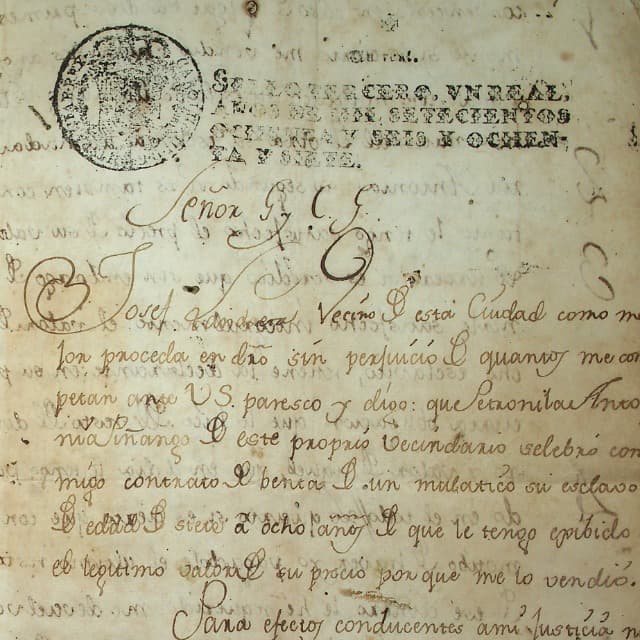 SELLO TERCERO, VN REAL,
AÑOS DE MIL SETECIENTOS
OCHENTA Y SEIS Y OCHEN-
TA Y SIETE.
Señor G. C. J.
Josef Vecino D esta Ciudad como me
jor proceda en dro sin perjuicio D quantos me com
petan ante VS. paresco y digo: que Petronila Anto
nia D este proprio Vecindario selebró con
migo contrato D benta D un mulatico su esclavo
D edad D siete a ocho años D que le tengo exibido
el legitimo valor D su precio por que me lo vendió.
Para efectos conducentes ami Justicia